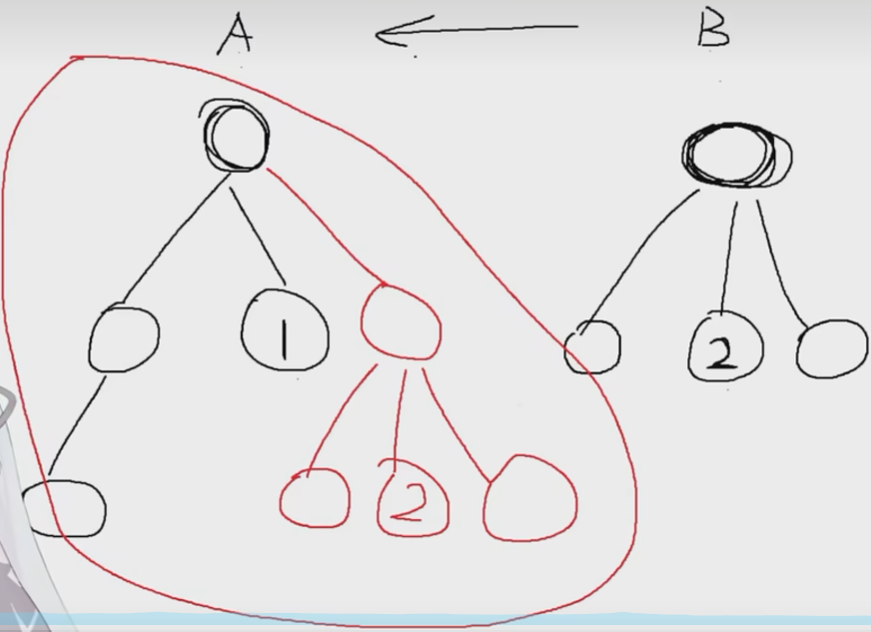 A B
1
2
2